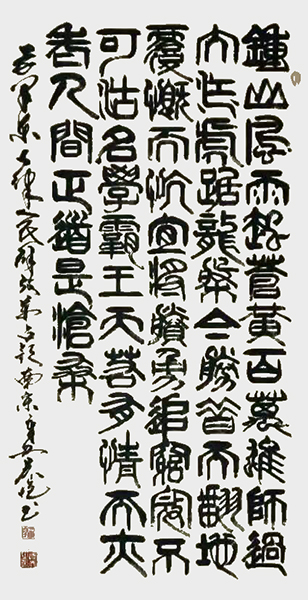 鍾山風雨起蒼黃百萬雄師過
大江虎踞龍盤今勝昔天翻地
覆慨而慷宜將勝勇追窮寇不
可沽名學霸王天若有情天亦
老人間正道是滄桑
毛澤東七律人民解放軍占領南京